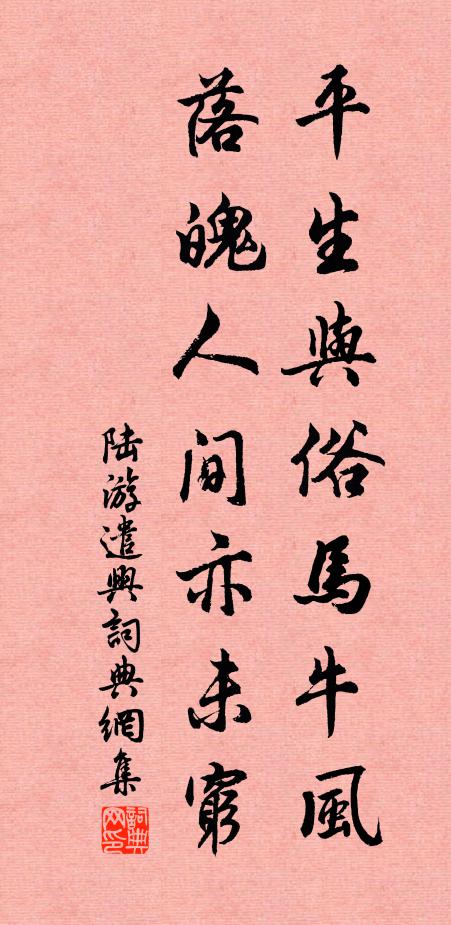 平生與俗馬牛風
落魄人間亦未窮
陆游遣興詞典網集
詞典網印